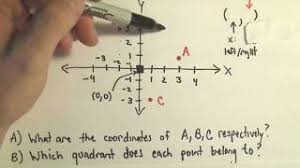 Y
( , )
3
x:
left/right
A
-4 -3 -2 1 2 3 4 X
(0,0)
-1
-2
-3 C
A) What are the coordinates of A, B, C respectively?
B) Which quadrant does each point belong to?